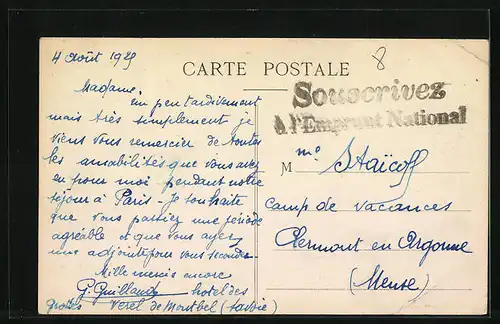 4 août 1929
8
CARTE POSTALE
Souscrivez
à l'Emprunt National
Madame,
un peu tardivement
mais très simplement je
viens vous remercier de toutes
les amabilités que vous avez
eu pour moi pendant notre
séjour à Paris - Je souhaite
que vous passiez une période
agréable et que vous ayez
une adjointe pour vous seconder
Mille mercis encore
G. Guillaude hotel des
grottes Verel de Montbel (Savoie)
M me Staïcoff
Camp de vacances
Clermont en Argonne
(Meuse)